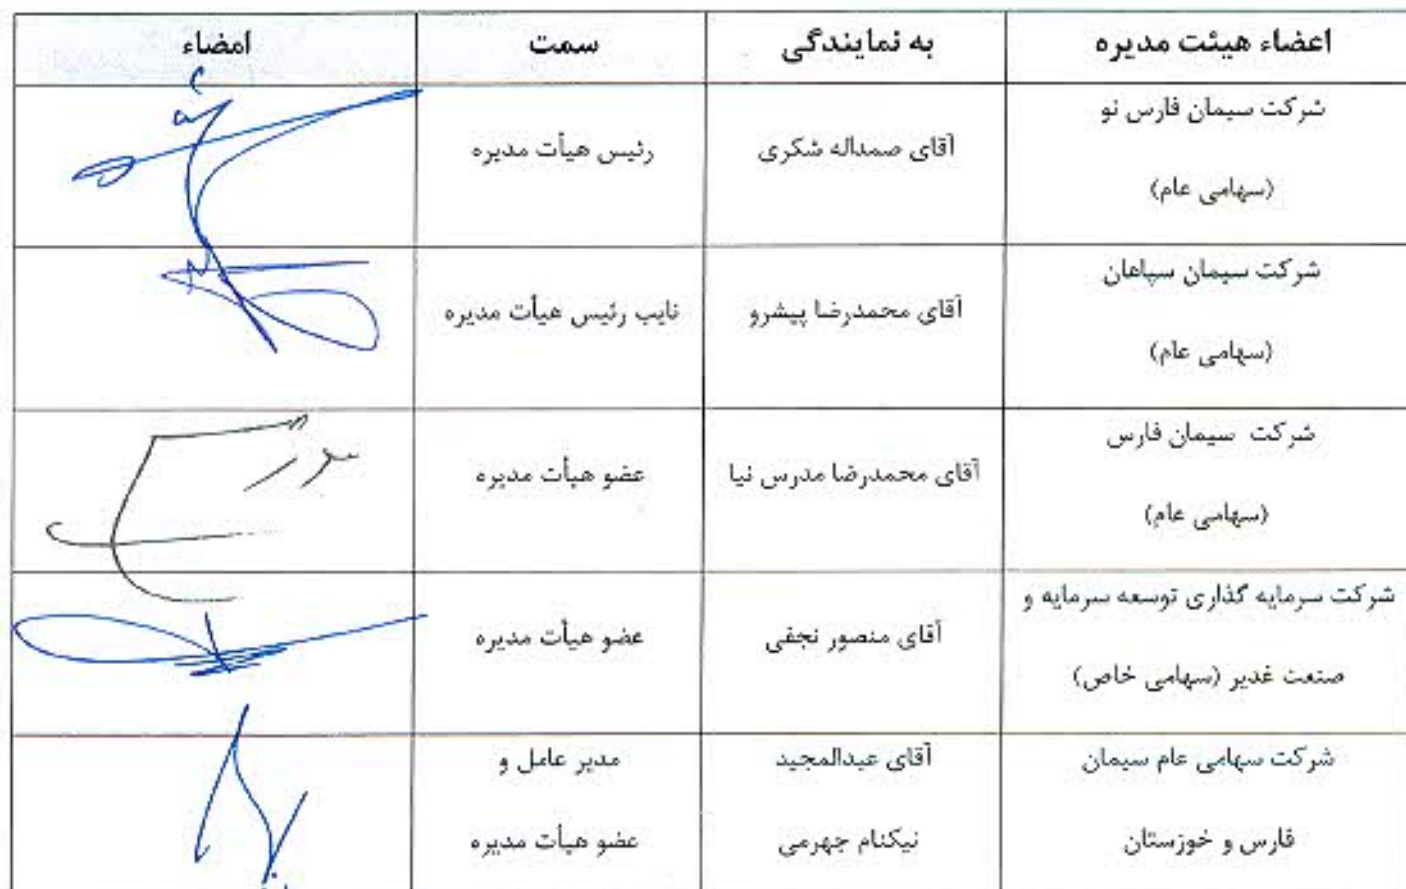 اعضاء هیئت مدیره به نمایندگی سمت امضاء
شرکت سیمان فارس نو
(سهامی عام)
آقای صمداله شکری
رئیس هیأت مدیره
شرکت سیمان سپاهان
(سهامی عام)
آقای محمدرضا پیشرو
نایب رئیس هیأت مدیره
شرکت سیمان فارس
(سهامی عام)
آقای محمدرضا مدرس نیا
عضو هیأت مدیره
شرکت سرمایه گذاری توسعه سرمایه و
صنعت غدیر (سهامی خاص)
آقای منصور نجفی
عضو هیأت مدیره
شرکت سهامی عام سیمان
فارس و خوزستان
آقای عبدالمجید
نیکنام جهرمی
مدیر عامل و
عضو هیأت مدیره